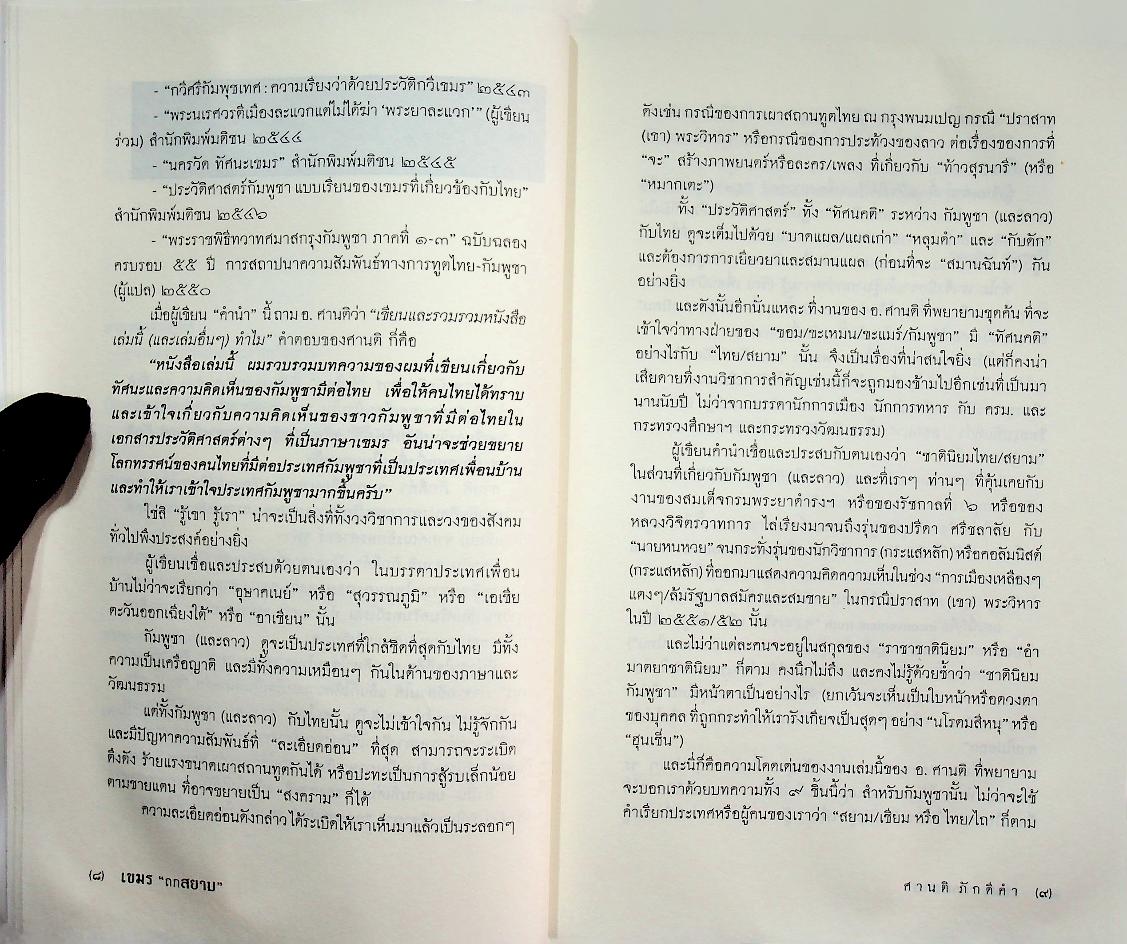 - “กวีศรีกัมพุชเทศ : ความเรียงว่าด้วยประวัติกวีเขมร” ๒๕๔๓
- “พระนเรศวรตีเมืองละแวกแต่ไม่ได้ฆ่า ‘พระยาละแวก’” (ผู้เขียน
ร่วม) สำนักพิมพ์มติชน ๒๕๔๔
- “นครวัด ทัศนะเขมร” สำนักพิมพ์มติชน ๒๕๔๕
- “ประวัติศาสตร์กัมพูชา แบบเรียนของเขมรที่เกี่ยวข้องกับไทย”
สำนักพิมพ์มติชน ๒๕๔๖
- “พระราชพิธีทวาทศมาสกรุงกัมพูชา ภาคที่ ๑-๓” ฉบับฉลอง
ครบรอบ ๕๕ ปี การสถาปนาความสัมพันธ์ทางการทูตไทย-กัมพูชา
(ผู้แปล) ๒๕๕๐
เมื่อผู้เขียน “คำนำ” นี้ ถาม อ. ศานติว่า “เขียนและรวบรวมหนังสือ
เล่มนี้ (และเล่มอื่นๆ) ทำไม” คำตอบของศานติ ก็คือ
“หนังสือเล่มนี้ ผมรวบรวมบทความของผมที่เขียนเกี่ยวกับ
ทัศนะและความคิดเห็นของกัมพูชามีต่อไทย เพื่อให้คนไทยได้ทราบ
และเข้าใจเกี่ยวกับความคิดเห็นของชาวกัมพูชาที่มีต่อไทยใน
เอกสารประวัติศาสตร์ต่างๆ ที่เป็นภาษาเขมร อันน่าจะช่วยขยาย
โลกทรรศน์ของคนไทยที่มีต่อประเทศกัมพูชาที่เป็นประเทศเพื่อนบ้าน
และทำให้เราเข้าใจประเทศกัมพูชามากขึ้นครับ”
ใช่สิ “รู้เขา รู้เรา” น่าจะเป็นสิ่งที่ทั้งวงวิชาการและวงของสังคม
ทั่วไปพึงประสงค์อย่างยิ่ง
ผู้เขียนเชื่อและประสบด้วยตนเองว่า ในบรรดาประเทศเพื่อน
บ้านไม่ว่าจะเรียกว่า “อุษาคเนย์” หรือ “สุวรรณภูมิ” หรือ “เอเชีย
ตะวันออกเฉียงใต้” หรือ “อาเซียน” นั้น
กัมพูชา (และลาว) ดูจะเป็นประเทศที่ใกล้ชิดที่สุดกับไทย มีทั้ง
ความเป็นเครือญาติ และมีทั้งความเหมือนๆ กันในด้านของภาษาและ
วัฒนธรรม
แต่ทั้งกัมพูชา (และลาว) กับไทยนั้น ดูจะไม่เข้าใจกัน ไม่รู้จักกัน
และมีปัญหาความสัมพันธ์ที่ “ละเอียดอ่อน” ที่สุด สามารถจะระเบิด
ตึงตัง ร้ายแรงขนาดเผาสถานทูตกันได้ หรือปะทะเป็นการสู้รบเล็กน้อย
ตามชายแดน ที่อาจขยายเป็น “สงคราม” ก็ได้
ความละเอียดอ่อนดังกล่าวได้ระเบิดให้เราเห็นมาแล้วเป็นระลอกๆ
(๘) เขมร “ถกสยาม”
ดังเช่น กรณีของการเผาสถานทูตไทย ณ กรุงพนมเปญ กรณี “ปราสาท
(เขา) พระวิหาร” หรือกรณีของการประท้วงของลาว ต่อเรื่องของการที่
“จะ” สร้างภาพยนตร์หรือละคร/เพลง ที่เกี่ยวกับ “ท้าวสุรนารี” (หรือ
“หมากเตะ”)
ทั้ง “ประวัติศาสตร์” ทั้ง “ทัศนคติ” ระหว่าง กัมพูชา (และลาว)
กับไทย ดูจะเต็มไปด้วย “บาดแผล/แผลเก่า” “หลุมดำ” และ “กับดัก”
และต้องการการเยียวยาและสมานแผล (ก่อนที่จะ “สมานฉันท์”) กัน
อย่างยิ่ง
และดังนั้นอีกนั่นแหละ ที่งานของ อ. ศานติ ที่พยายามขุดค้น ที่จะ
เข้าใจว่าทางฝ่ายของ “ขอม/ขะเหมน/ขะแมร์/กัมพูชา” มี “ทัศนคติ”
อย่างไรกับ “ไทย/สยาม” นั้น จึงเป็นเรื่องที่น่าสนใจยิ่ง (แต่ก็คงน่า
เสียดายที่งานวิชาการสำคัญเช่นนี้ก็จะถูกมองข้ามไปอีกเช่นที่เป็นมา
นานนับปี ไม่ว่าจากบรรดานักการเมือง นักการทหาร กับ ครม. และ
กระทรวงศึกษาฯ และกระทรวงวัฒนธรรม)
ผู้เขียนคำนำเชื่อและประสบกับตนเองว่า “ชาตินิยมไทย/สยาม”
ในส่วนที่เกี่ยวกับกัมพูชา (และลาว) และที่เราๆ ท่านๆ ที่คุ้นเคยกับ
งานของสมเด็จกรมพระยาดำรงฯ หรือของรัชกาลที่ ๖ หรือของ
หลวงวิจิตรวาทการ ไล่เรียงมาจนถึงรุ่นของปรีดา ศรีชลาลัย กับ
“นายหนหวย” จนกระทั่งรุ่นของนักวิชาการ (กระแสหลัก) หรือคอลัมนิสต์
(กระแสหลัก) ที่ออกมาแสดงความคิดความเห็นในช่วง “การเมืองเหลืองๆ
แดงๆ/ล้มรัฐบาลสมัครและสมชาย” ในกรณีปราสาท (เขา) พระวิหาร
ในปี ๒๕๕๑/๕๒ นั้น
และไม่ว่าแต่ละคนจะอยู่ในสกุลของ “ราชาชาตินิยม” หรือ “อำ
มาตยาชาตินิยม” ก็ตาม คงนึกไม่ถึง และคงไม่รู้ด้วยซ้ำว่า “ชาตินิยม
กัมพูชา” มีหน้าตาเป็นอย่างไร (ยกเว้นจะเห็นเป็นใบหน้าหรือดวงตา
ของบุคคล ที่ถูกกระทำให้เรารังเกียจเป็นสุดๆ อย่าง “นโรดมสีหนุ” หรือ
“ฮุนเซ็น”)
และนี่ก็คือความโดดเด่นของงานเล่มนี้ของ อ. ศานติ ที่พยายาม
จะบอกเราด้วยบทความทั้ง ๙ ชิ้นนี้ว่า สำหรับกัมพูชานั้น ไม่ว่าจะใช้
คำเรียกประเทศหรือผู้คนของเราว่า “สยาม/เซียม หรือ ไทย/ไถ” ก็ตาม
ศานติ ภักดีคำ (๙)